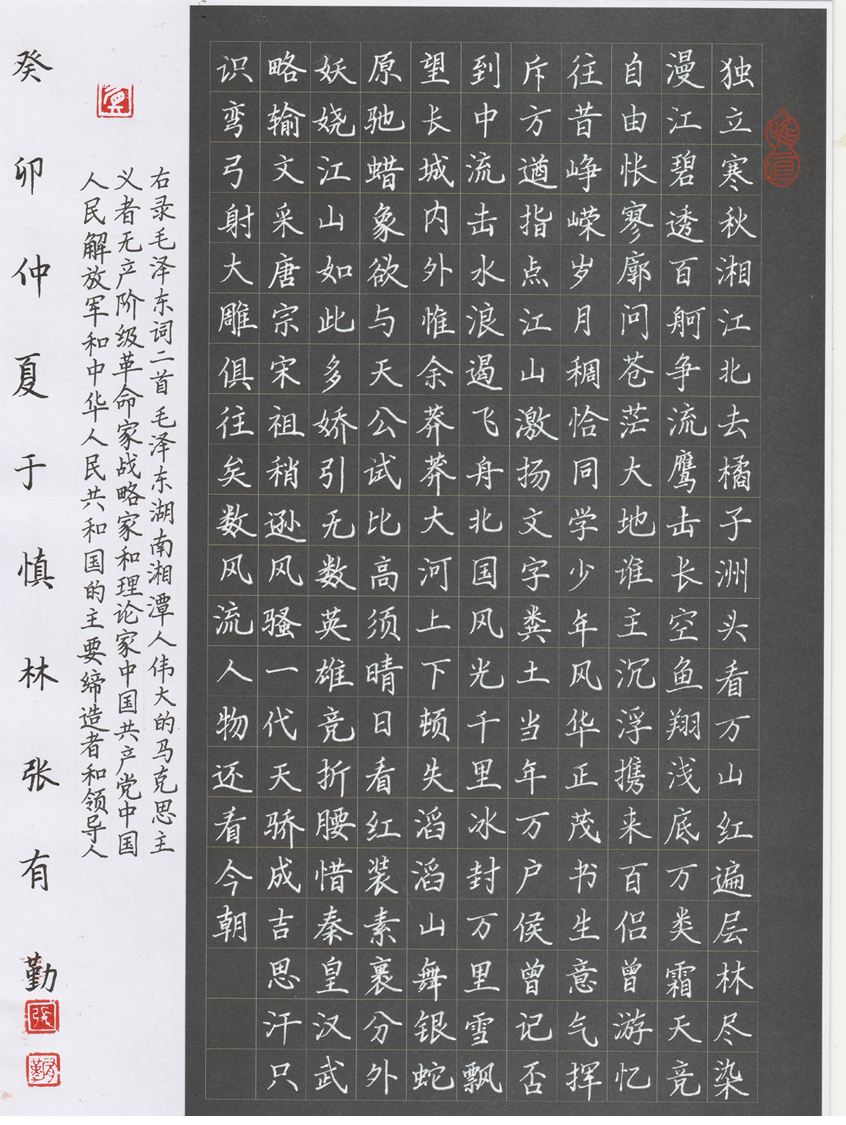 独立寒秋湘江北去橘子洲头看万山红遍层林尽染
漫江碧透百舸争流鹰击长空鱼翔浅底万类霜天竞
自由怅寥廓问苍茫大地谁主沉浮携来百侣曾游忆
往昔峥嵘岁月稠恰同学少年风华正茂书生意气挥
斥方遒指点江山激扬文字粪土当年万户侯曾记否
到中流击水浪遏飞舟北国风光千里冰封万里雪飘
望长城内外惟余莽莽大河上下顿失滔滔山舞银蛇
原驰蜡象欲与天公试比高须晴日看红装素裹分外
妖娆江山如此多娇引无数英雄竞折腰惜秦皇汉武
略输文采唐宗宋祖稍逊风骚一代天骄成吉思汗只
识弯弓射大雕俱往矣数风流人物还看今朝
右录毛泽东词二首毛泽东湖南湘潭人伟大的马克思主
义者无产阶级革命家战略家和理论家中国共产党中国
人民解放军和中华人民共和国的主要缔造者和领导人
癸卯仲夏于慎林张有勤